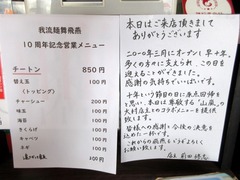 我流麺舞飛燕
10周年記念営業メニュー
チートン 850円
替え玉 100円
(トッピング)
チャーシュー 200円
味玉 100円
海苔 100円
きくらげ 100円
キャベツ 100円
ネギ 100円
100円
本日はご来店頂きまして
ありがとうございます
二〇一〇年三月にオープンし早十年。
多くの方々に支えられ、この日を
迎えることができました。
感謝の気持ちでいっぱいです。
十年という節目の日に原点回帰を
と思い、本日は尊敬する「山嵐」の
大村店主とのコラボメニューを提供
致します。
皆様への感謝と今後の決意を
込めた一杯です。
これからの飛燕もどうぞよろしく
お願い致します。
店主 前田